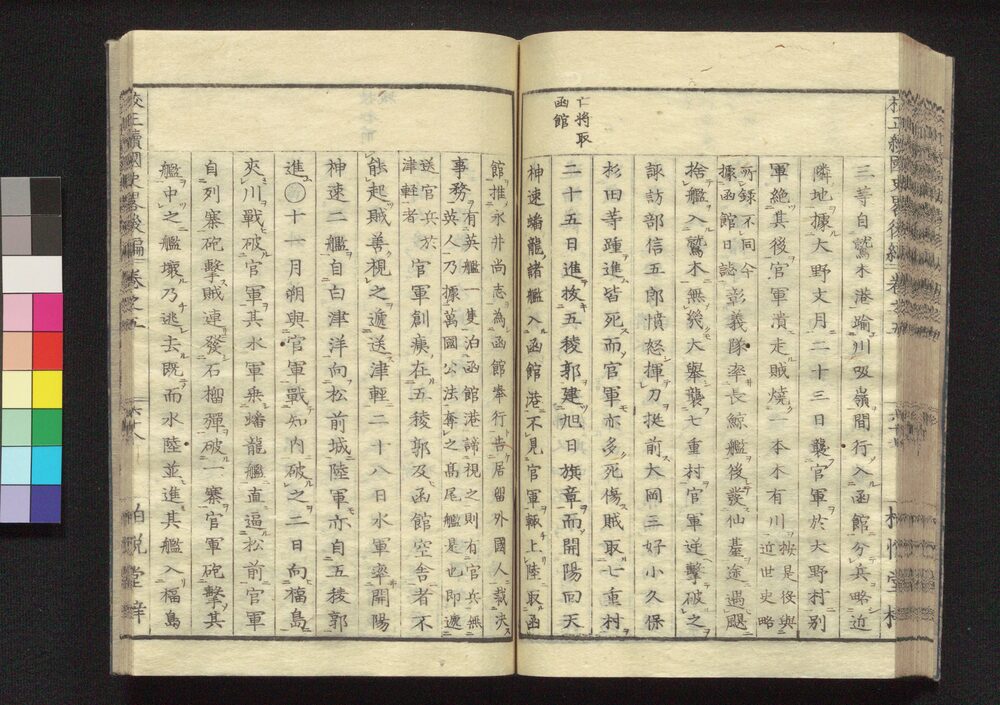 亡將取
函館
三等自鷲木港踰川吸嶺間行入函館分兵略近
隣地據大野文月二十三日襲官軍於大野村別
軍絶其後官軍潰走賊燒一本木有川按是役與近世史略
所錄不同今據函館日誌彰義隊率長鯨艦後發仙䑓途遇颶
捨艦入鷲木無幾大擧襲七重村官軍逆擊破之
諏訪部信五郎憤怒揮刀挺前大岡三好小久保
杉田等踵進皆死而官軍亦多死傷賊取七重村
二十五日進拔五稜郭建旭日旗章而開陽回天
神速蟠龍諸艦入函館港不見官軍輙上陸取函
館推永井尚志為函館奉行告居留外國人裁決
事務有英艦一隻泊函館港諦視之則有官兵無英人乃據萬國公法奪之髙尾艦是也即還
送官兵於津輕者官軍創痍在五稜郭及函館空舎者不
能起賊善視之遞送津輕二十八日水軍率開陽
神速二艦自白津洋向松前城陸軍亦自五稜郭
進十一月朔與官軍戰知内破之二日向福島
夾川戰破官軍其水軍乗蟠龍艦直逼松前官軍
自列寨砲擊賊連發石榴彈破一寨官軍砲擊其
艦中之艦壞乃逃去既而水陸並進其艦入福島
校正續國史畧後編 卷之五
六八
柏悅堂梓